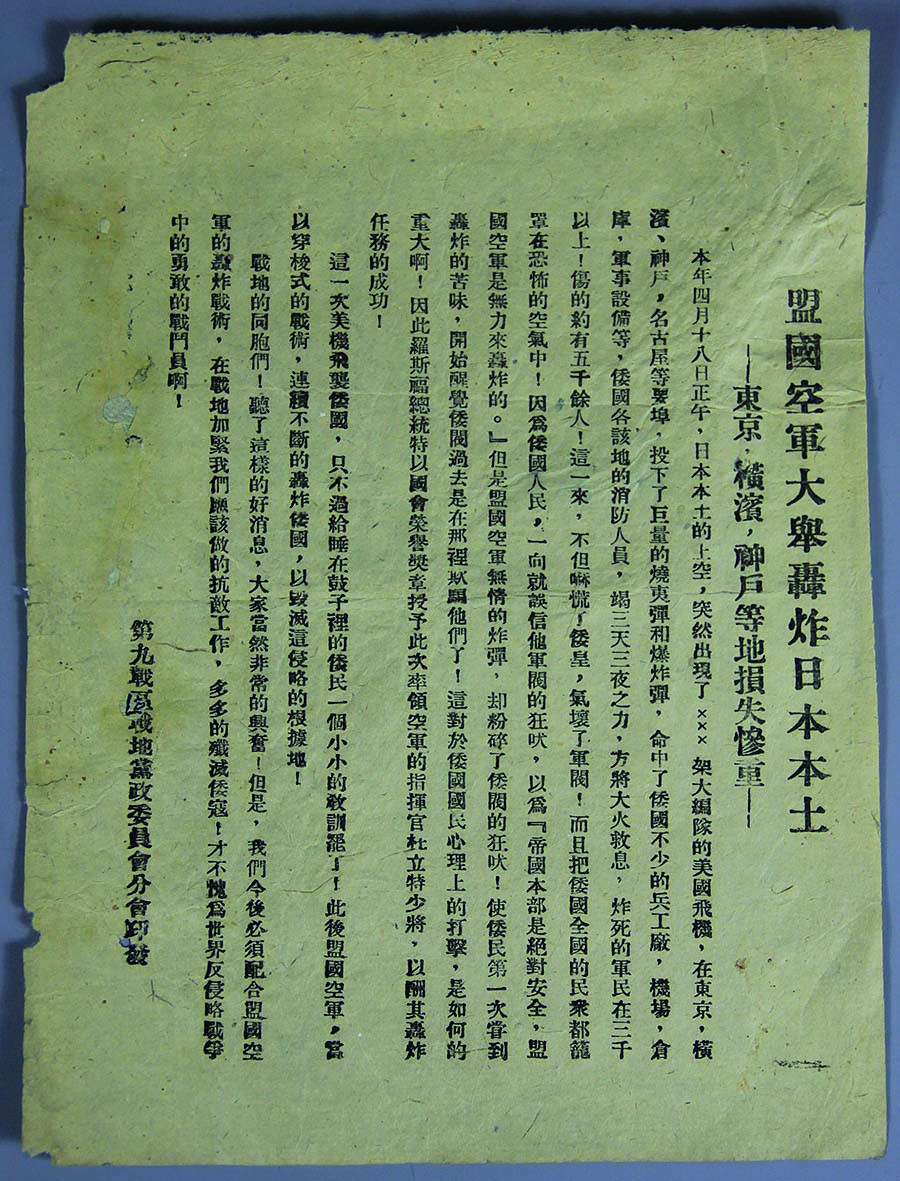 盟國空軍大舉轟炸日本本土
——東京，橫濱，神戶等地損失慘重——
本年四月十八日正午，日本本土的上空，突然出現了×××架大編隊的美國飛機，在東京，橫
濱、神戶，名古屋等要埠，投下了巨量的燒夷彈和爆炸彈，命中了倭國不少的兵工廠，機場，倉
庫，軍事設備等，倭國各該地的消防人員，竭三天三夜之力，方將大火救息，炸死的軍民在三千
以上！傷的約有五千餘人！這一來，不但嚇慌了倭皇，氣壞了軍閥！而且把倭國全國的民衆都籠
罩在恐怖的空氣中！因爲倭國人民，一向就誤信他軍閥的狂吠，以爲『帝國本部是絕對安全，盟
國空軍是無力來轟炸的。』但是盟國空軍無情的炸彈，却粉碎了倭閥的狂吠！使倭民第一次嘗到
轟炸的苦味，開始醒覺倭閥過去是在那裡欺騙他們了！這對於倭國國民心理上的打擊，是如何的
重大啊！因此羅斯福總統特以國會榮譽獎章授予此次率領空軍的指揮官杜立特少將，以酬其轟炸
任務的成功！
這一次美機飛襲倭國，只不過給睡在鼓子裡的倭民一個小小的教訓罷了！此後盟國空軍，當
以穿梭式的戰術，連續不斷的轟炸倭國，以毀滅這侵略的根據地！
戰地的同胞們！聽了這樣的好消息，大家當然非常的興奮！但是，我們今後必須配合盟國空
軍的轟炸戰術，在戰地加緊我們應該做的抗敵工作，多多的殲滅倭寇！才不愧爲世界反侵略戰爭
中的勇敢的戰鬥員啊！
第九戰區戰地黨政委員會分會印發